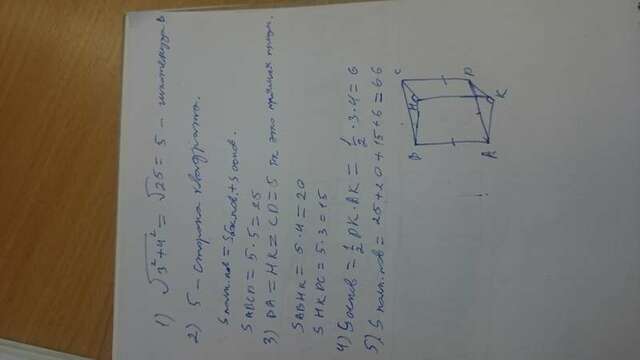 1) √3²+4² = √25 = 5 - гипотенуза
2) 5 - сторона квадрата.
S полн.пов = S бок.пов + S основ.
S ABCD = 5·5 = 25
3) DA = HK = CD = 5 тк это прямая призма.
S ABHK = 5·4 = 20
S HKDC = 5·3 = 15
4) S основ = 1/2 DK·AK = 1/2·3·4 = 6
5) S полн.пов = 25+20+15+6 = 66
C
D
H
K
B
A